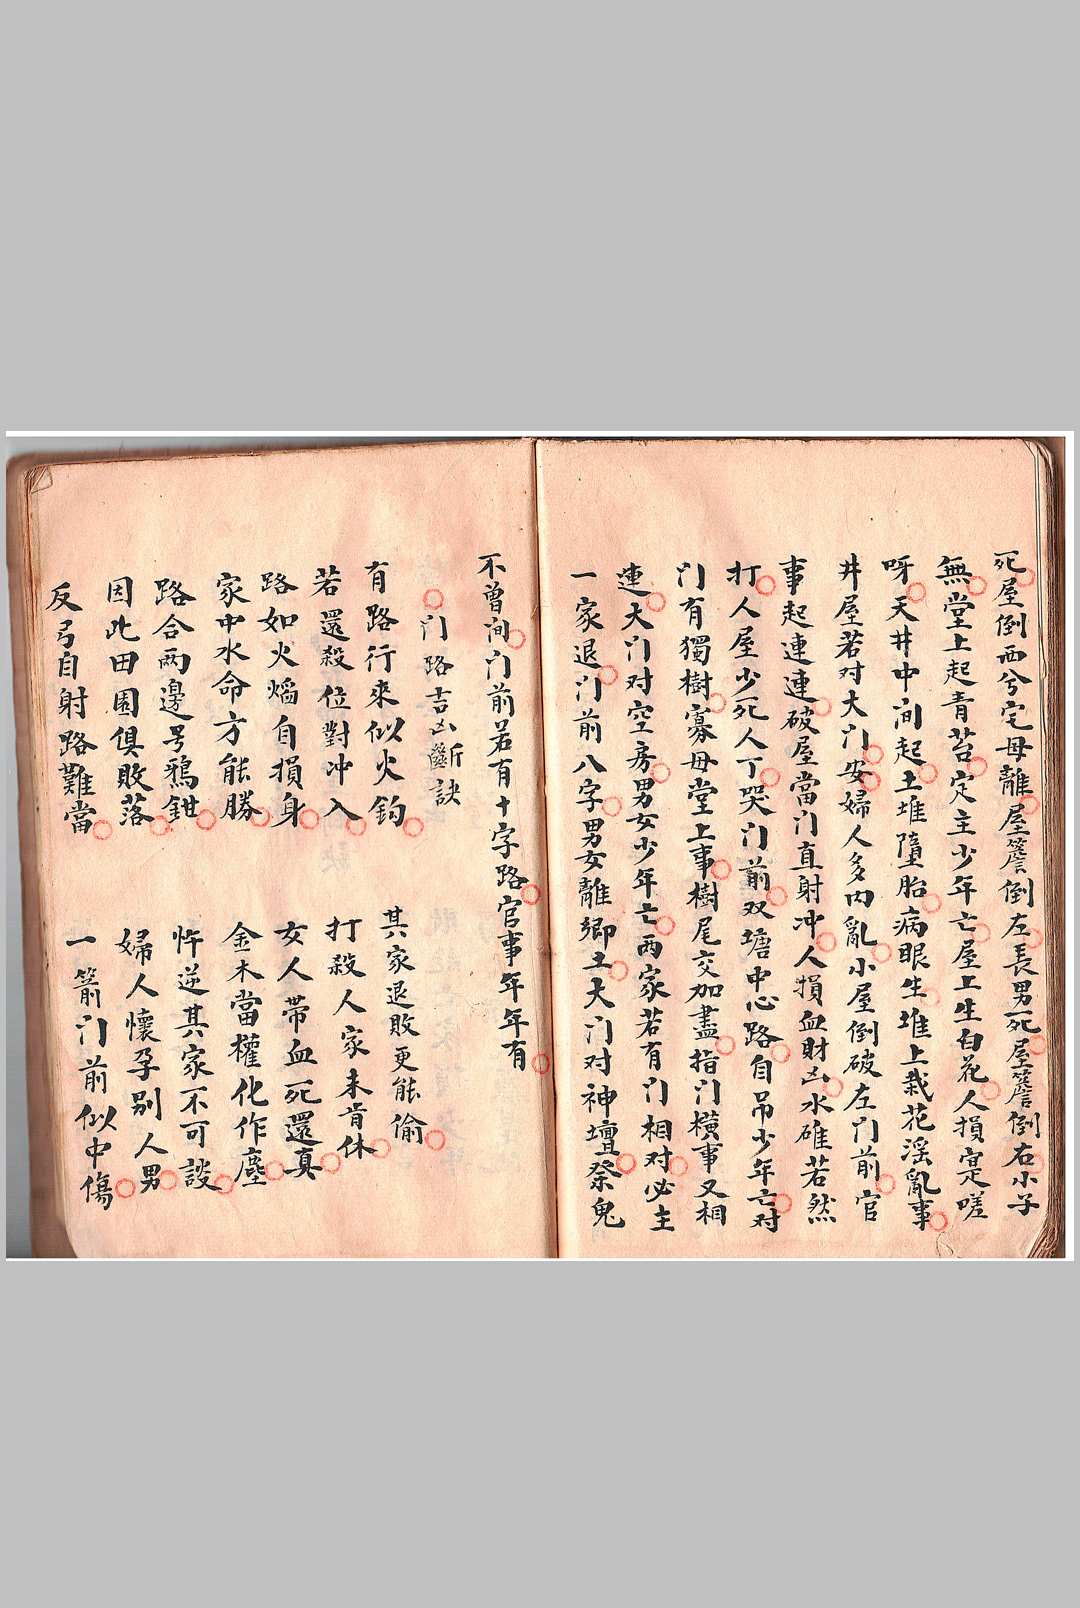 死屋倒西兮宅母離屋簷倒左長男死屋簷倒右小子
無堂上起青苔定主少年亡屋上生白花人損寔嗟
呀天井中间起土堆墮胎病眼生堆上栽花淫亂事
井屋若对大门安婦人多内亂小屋倒破左门前官
事起連連破屋當门直射冲人損血財凶水碓若然
打人屋少死人丁哭门前双塘中心路自吊少年亡对
门有獨樹寡母堂上事樹尾交加盡指门橫事又相
連大门对空房男女少年亡两家若有门相对必主
一家退门前八字男女離鄉土大门对神壇祭鬼
不曾间门前若有十字路官事年年有
门路吉凶斷訣
有路行來似火鈎 其家退敗更能偷
若還殺位對冲入 打殺人家未肯休
路如火焰自損身 女人带血死還真
家中水命方能勝 金木當權化作塵
路合两邊号鴉鉗 忤逆其家不可談
因此田園俱敗落 婦人懷孕别人男
反弓自射路難當 一箭门前似中傷